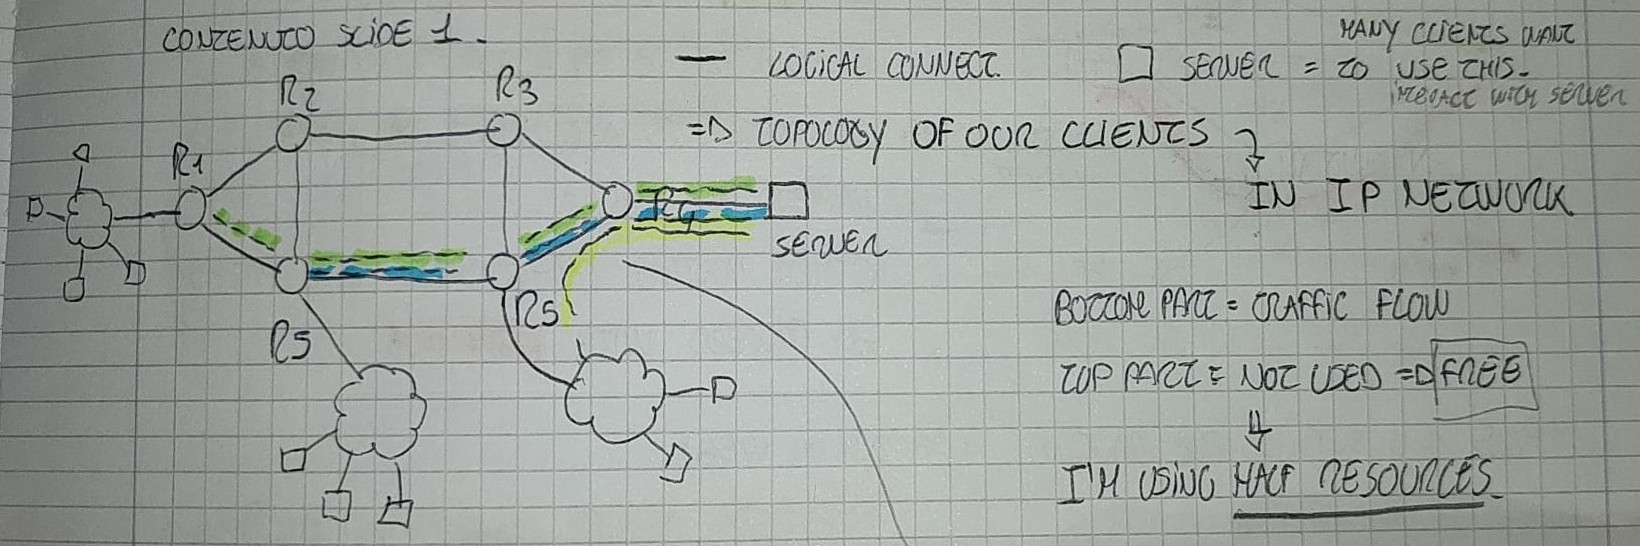 CONTENUTO SLIDE 1.
MANY CLIENTS WANT
— LOGICAL CONNECT.
□ SERVER = TO USE THIS.
INTERACT WITH SERVER
R2
R3
=> TOPOLOGY OF OUR CLIENTS
IN IP NETWORK
R1
R4
SERVER
R5
R5
BOTTOM PART = TRAFFIC FLOW
TOP PART = NOT USED => FREE
I'M USING HALF RESOURCES.